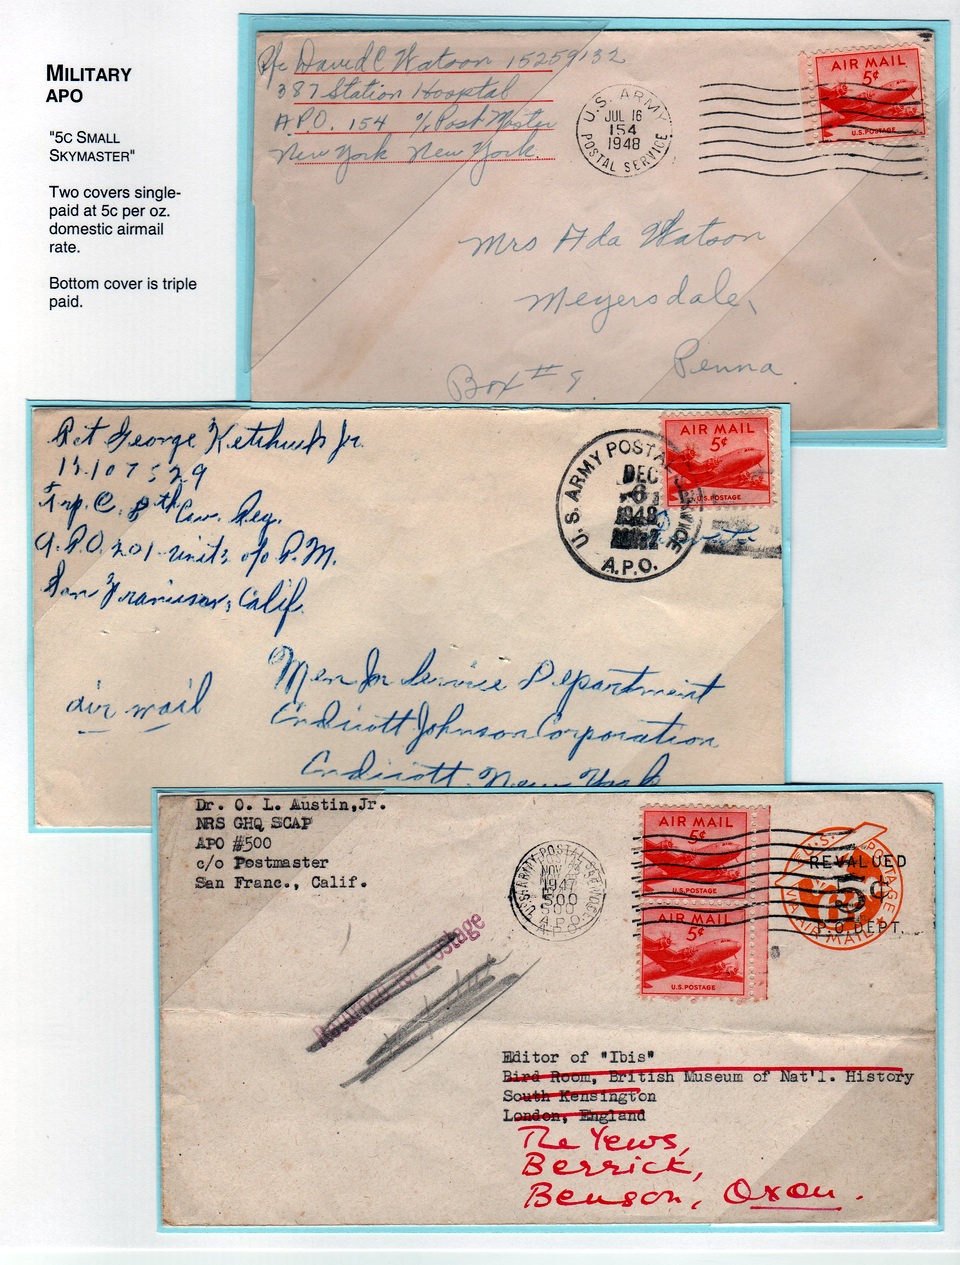 MILITARY
APO
"5C SMALL
SKYMASTER"
Two covers single-
paid at 5c per oz.
domestic airmail
rate.
Bottom cover is triple
paid.
Pfc David C Watson 15259132
387 Station Hospital
A.P.O. 154 c/o Post Master
New York New York.
U.S. ARMY
JUL 16
154
1948
POSTAL SERVICE
AIR MAIL
5¢
U.S. POSTAGE
Mrs Ada Watson
Meyersdale,
Box # 9 Penna
Pvt George Ketchuck Jr.
Trp. C. 8th Cav. Reg.
A.P.O. 201-unit 2 c/o P.M.
San Francisco, Calif.
U.S. ARMY POSTAL SERVICE
DEC
6
1948
A.P.O.
AIR MAIL
5¢
U.S. POSTAGE
air mail
Men In Service Department
Endicott Johnson Corporation
Endicott, New York
Dr. O. L. Austin,Jr.
NRS GHQ SCAP
APO #500
c/o Postmaster
San Franc., Calif.
U.S. ARMY POSTAL SERVICE
NOV
1947
500
A.P.O.
AIR MAIL
5¢
U.S. POSTAGE
AIR MAIL
5¢
U.S. POSTAGE
U.S. POSTAGE
REVALUED
5¢
P.O.DEPT.
VIA AIR MAIL
Returned for Postage
Editor of "Ibis"
Bird Room, British Museum of Nat'l. History
South Kensington
London, England
The Yews,
Berrick,
Benson, Oxon.